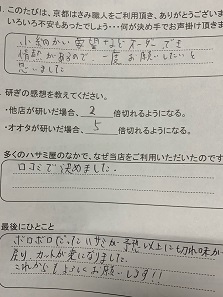 このたびは、京都はさみ職人をご利用頂き、ありがとうございま
いろいろ不安もあったでしょう・・・何が決め手でお声掛け頂きま
小細かい質問などオーダーでき
情熱があるので、一度お願いしたいと
思いました
研ぎの感想を教えてください。
・他店が研いだ場合、2 倍切れるようになる。
・オオタが研いだ場合、5 倍切れるようになる。
多くのハサミ屋のなかで、なぜ当店をご利用いただいたのです
口コミで決めました。
最後にひとこと
ボロボロだったハサミが予想以上にも切れ味が
戻り、カットが楽になりました。
これからもよろしくお願いします!!